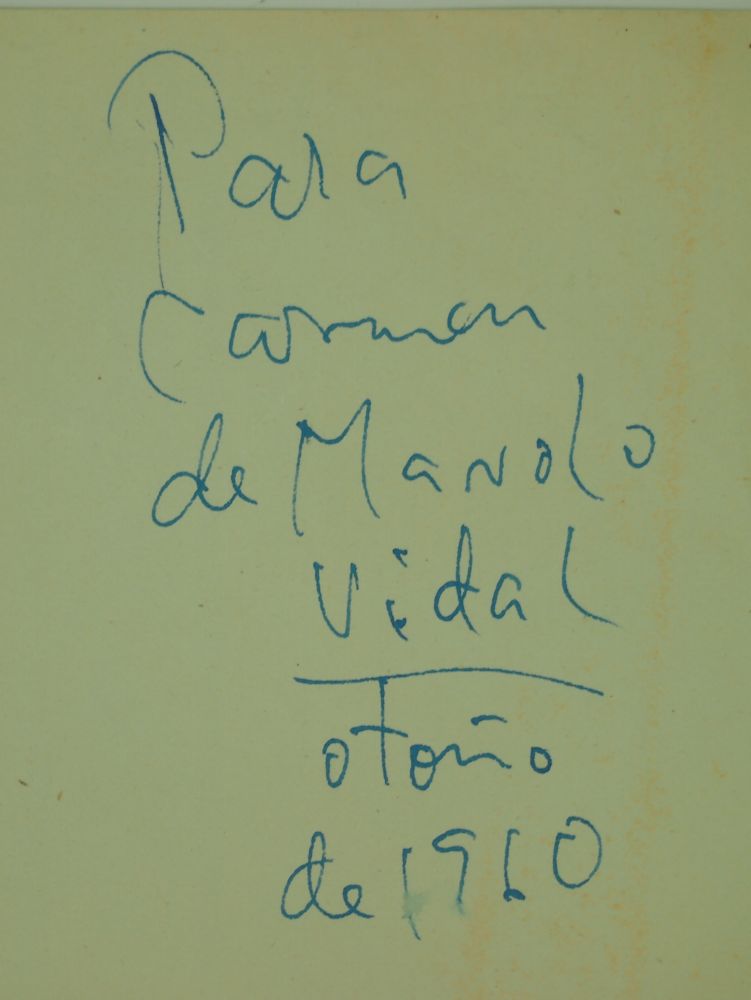 Para
Carmen
de Manolo
Vidal
otoño
de 1960